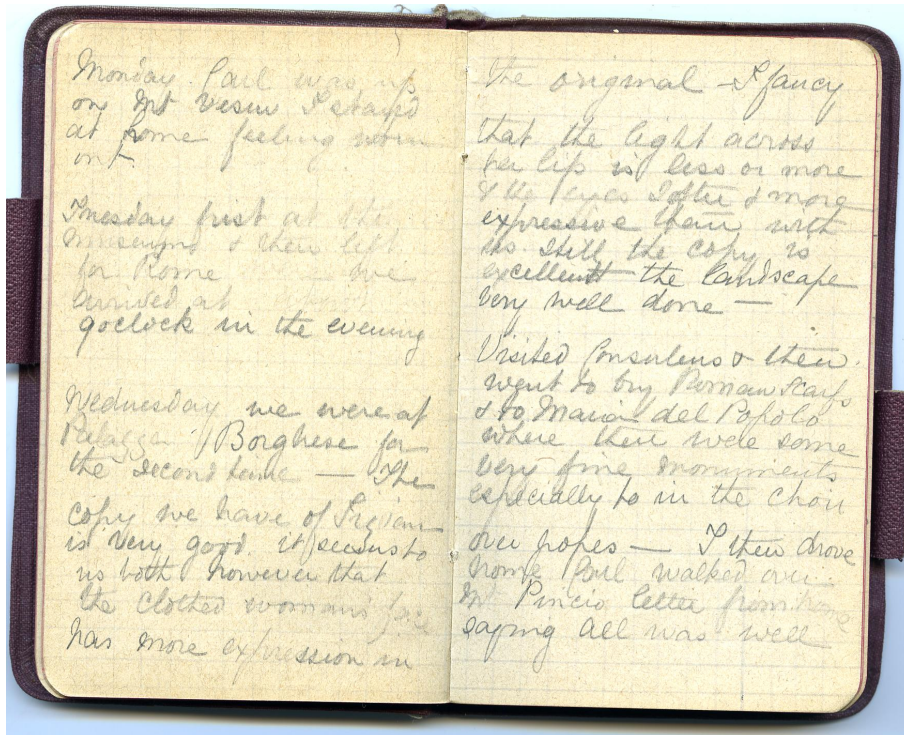 Monday. Paul was up
on Mt Vesuv I stayed
at home feeling worn
out
Tuesday first at the
museum & then left
for Rome we
arrived at
9oclock in the evening
Wednesday we were at
Palazzo Borghese for
the second time — The
copy we have of Tizian
is very good. it seems to
us both however that
the clothed woman's face
has more expression in
the original — I fancy
that the light across
her lip is less or more
& the eyes softer & more
expressive than with
us still the copy is
excellent the landscape
very well done —
Visited Consulens & then
went to buy Roman scarfs
& to Maria del Popolo
where there were some
very fine monuments
especially to in the choir
over popes — I then drove
home Paul walked over
Mt Pincio letter from home
saying all was well